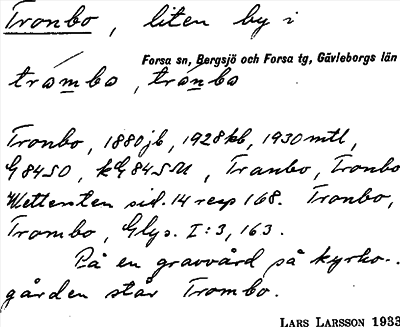 Tronbo, liten by i
Forsa sn, Bergsjö och Forsa tg, Gävleborgs län
trámbo, tránbo
Tronbo, 1880 jb, 1928 kb, 1930 mtl,
G 84 SO, kG 84 SM, Tranbo, Tronbo
Wettersten sid. 14 resp 168. Tronbo,
Trombo, Glys. I: 3, 163.
På en gravvård på kyrko-
gården står Trombo.
LARS LARSSON 1933